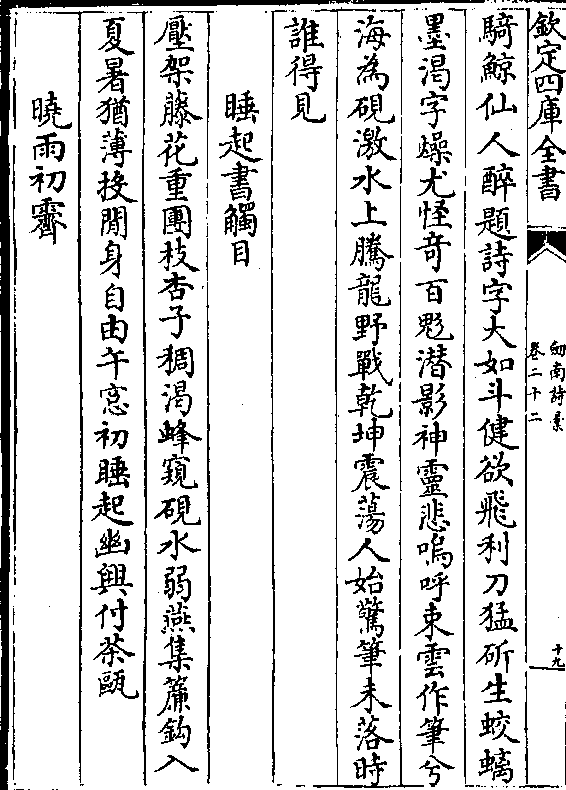 欽定四庫全書
劒南詩槀
卷二十二
十九
騎鯨仙人醉題詩字大如斗健欲飛利刀猛斫生蛟螭
墨渴字燥尤怪竒百鬽潛影神靈悲嗚呼束雲作筆兮
海為硯激水上騰龍野戰乾坤震蕩人始驚筆未落時
誰得見
睡起書觸目
壓架藤花重團枝杏子稠渴蜂窺硯水弱燕集簾鈎入
夏暑猶薄投閒身自由午窓初睡起幽興付茶甌
曉雨初霽